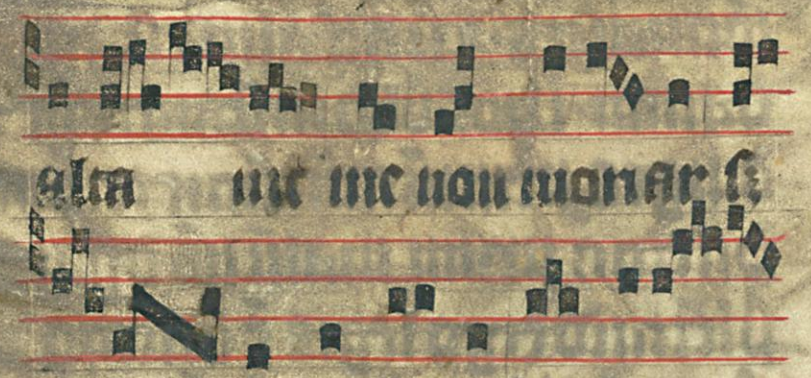 alta me me non moriar sz